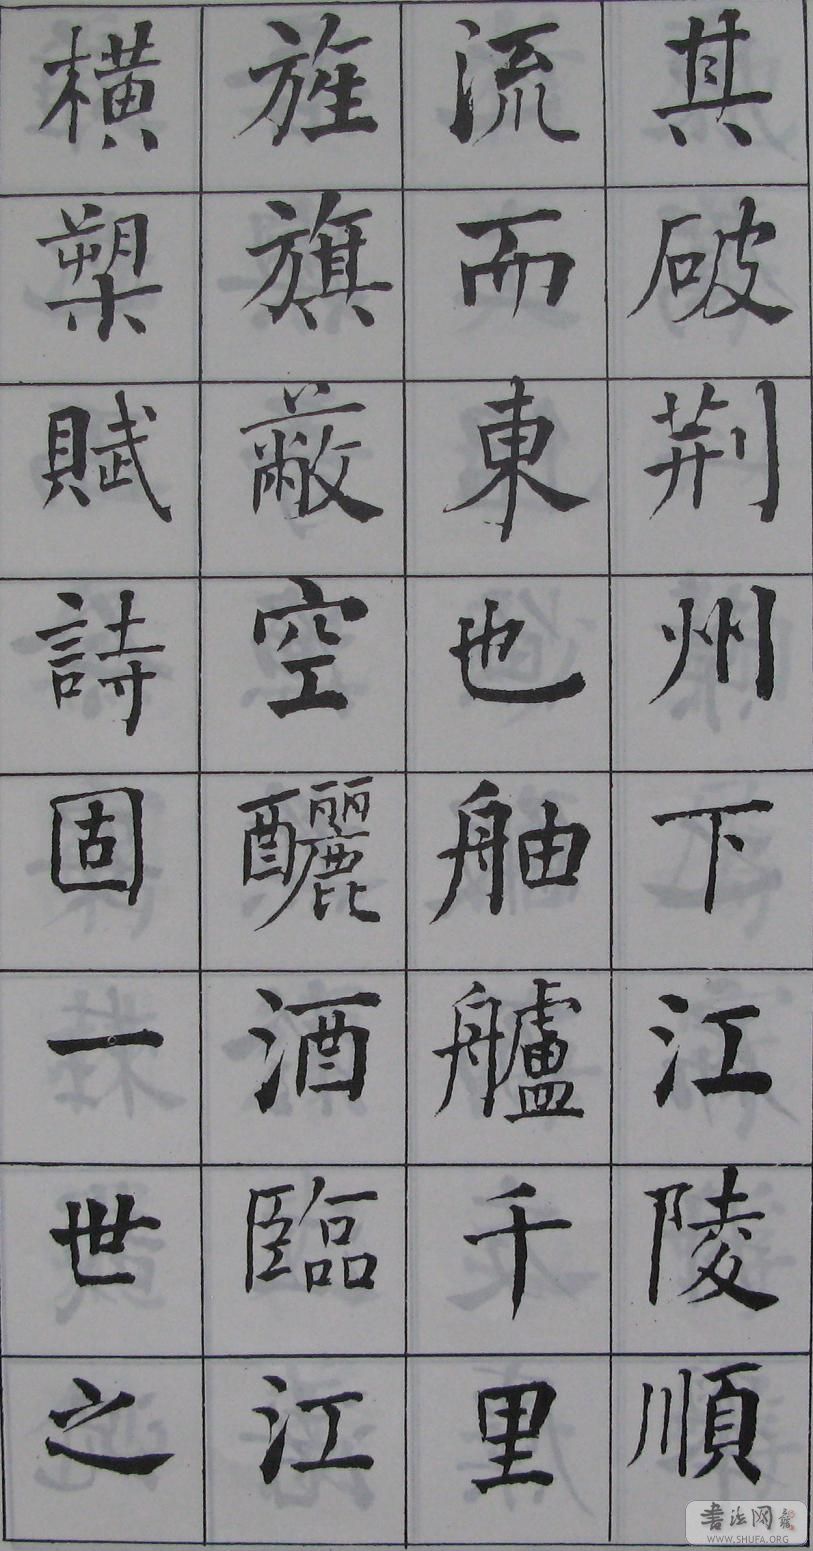 其破荊州下江陵順
流而東也舳艫千里
旌旗蔽空釃酒臨江
橫槊賦詩固一世之
书法网
WWW.SHUFA.ORG